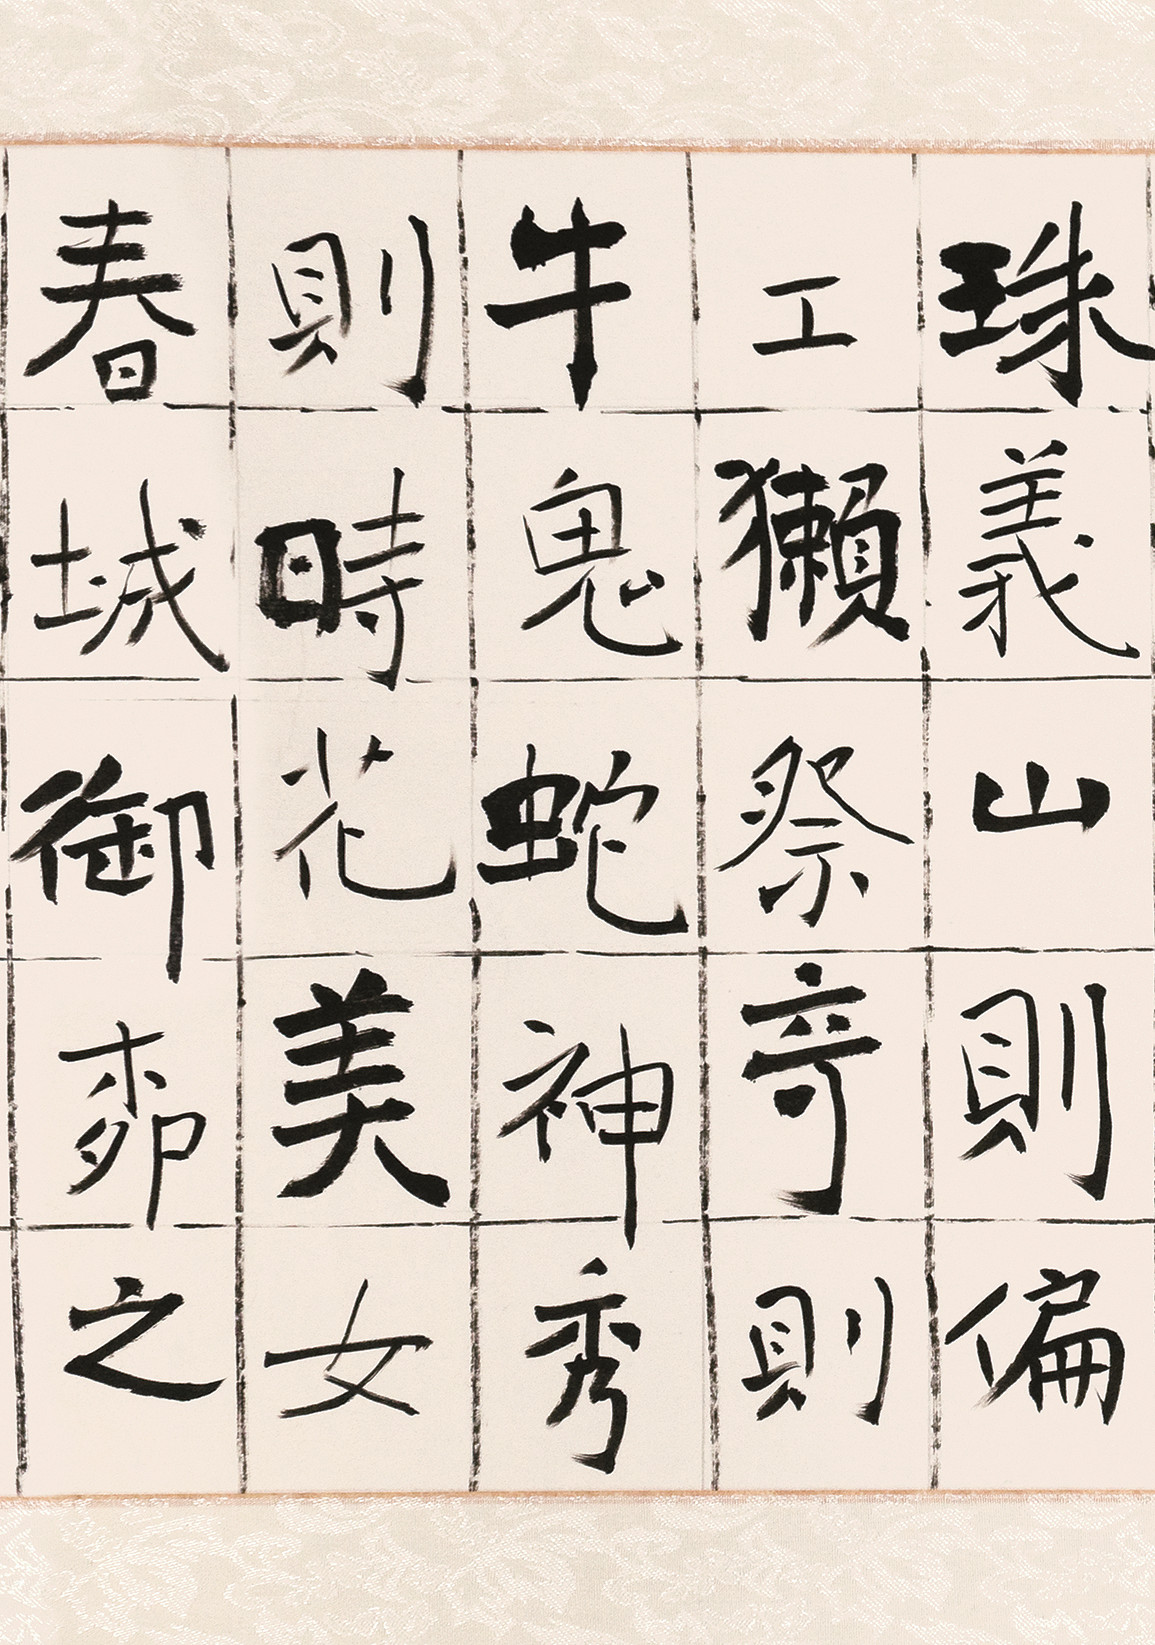 珠義山則偏
工獺祭奇則
牛鬼蛇神秀
則時花美女
春城御桺之